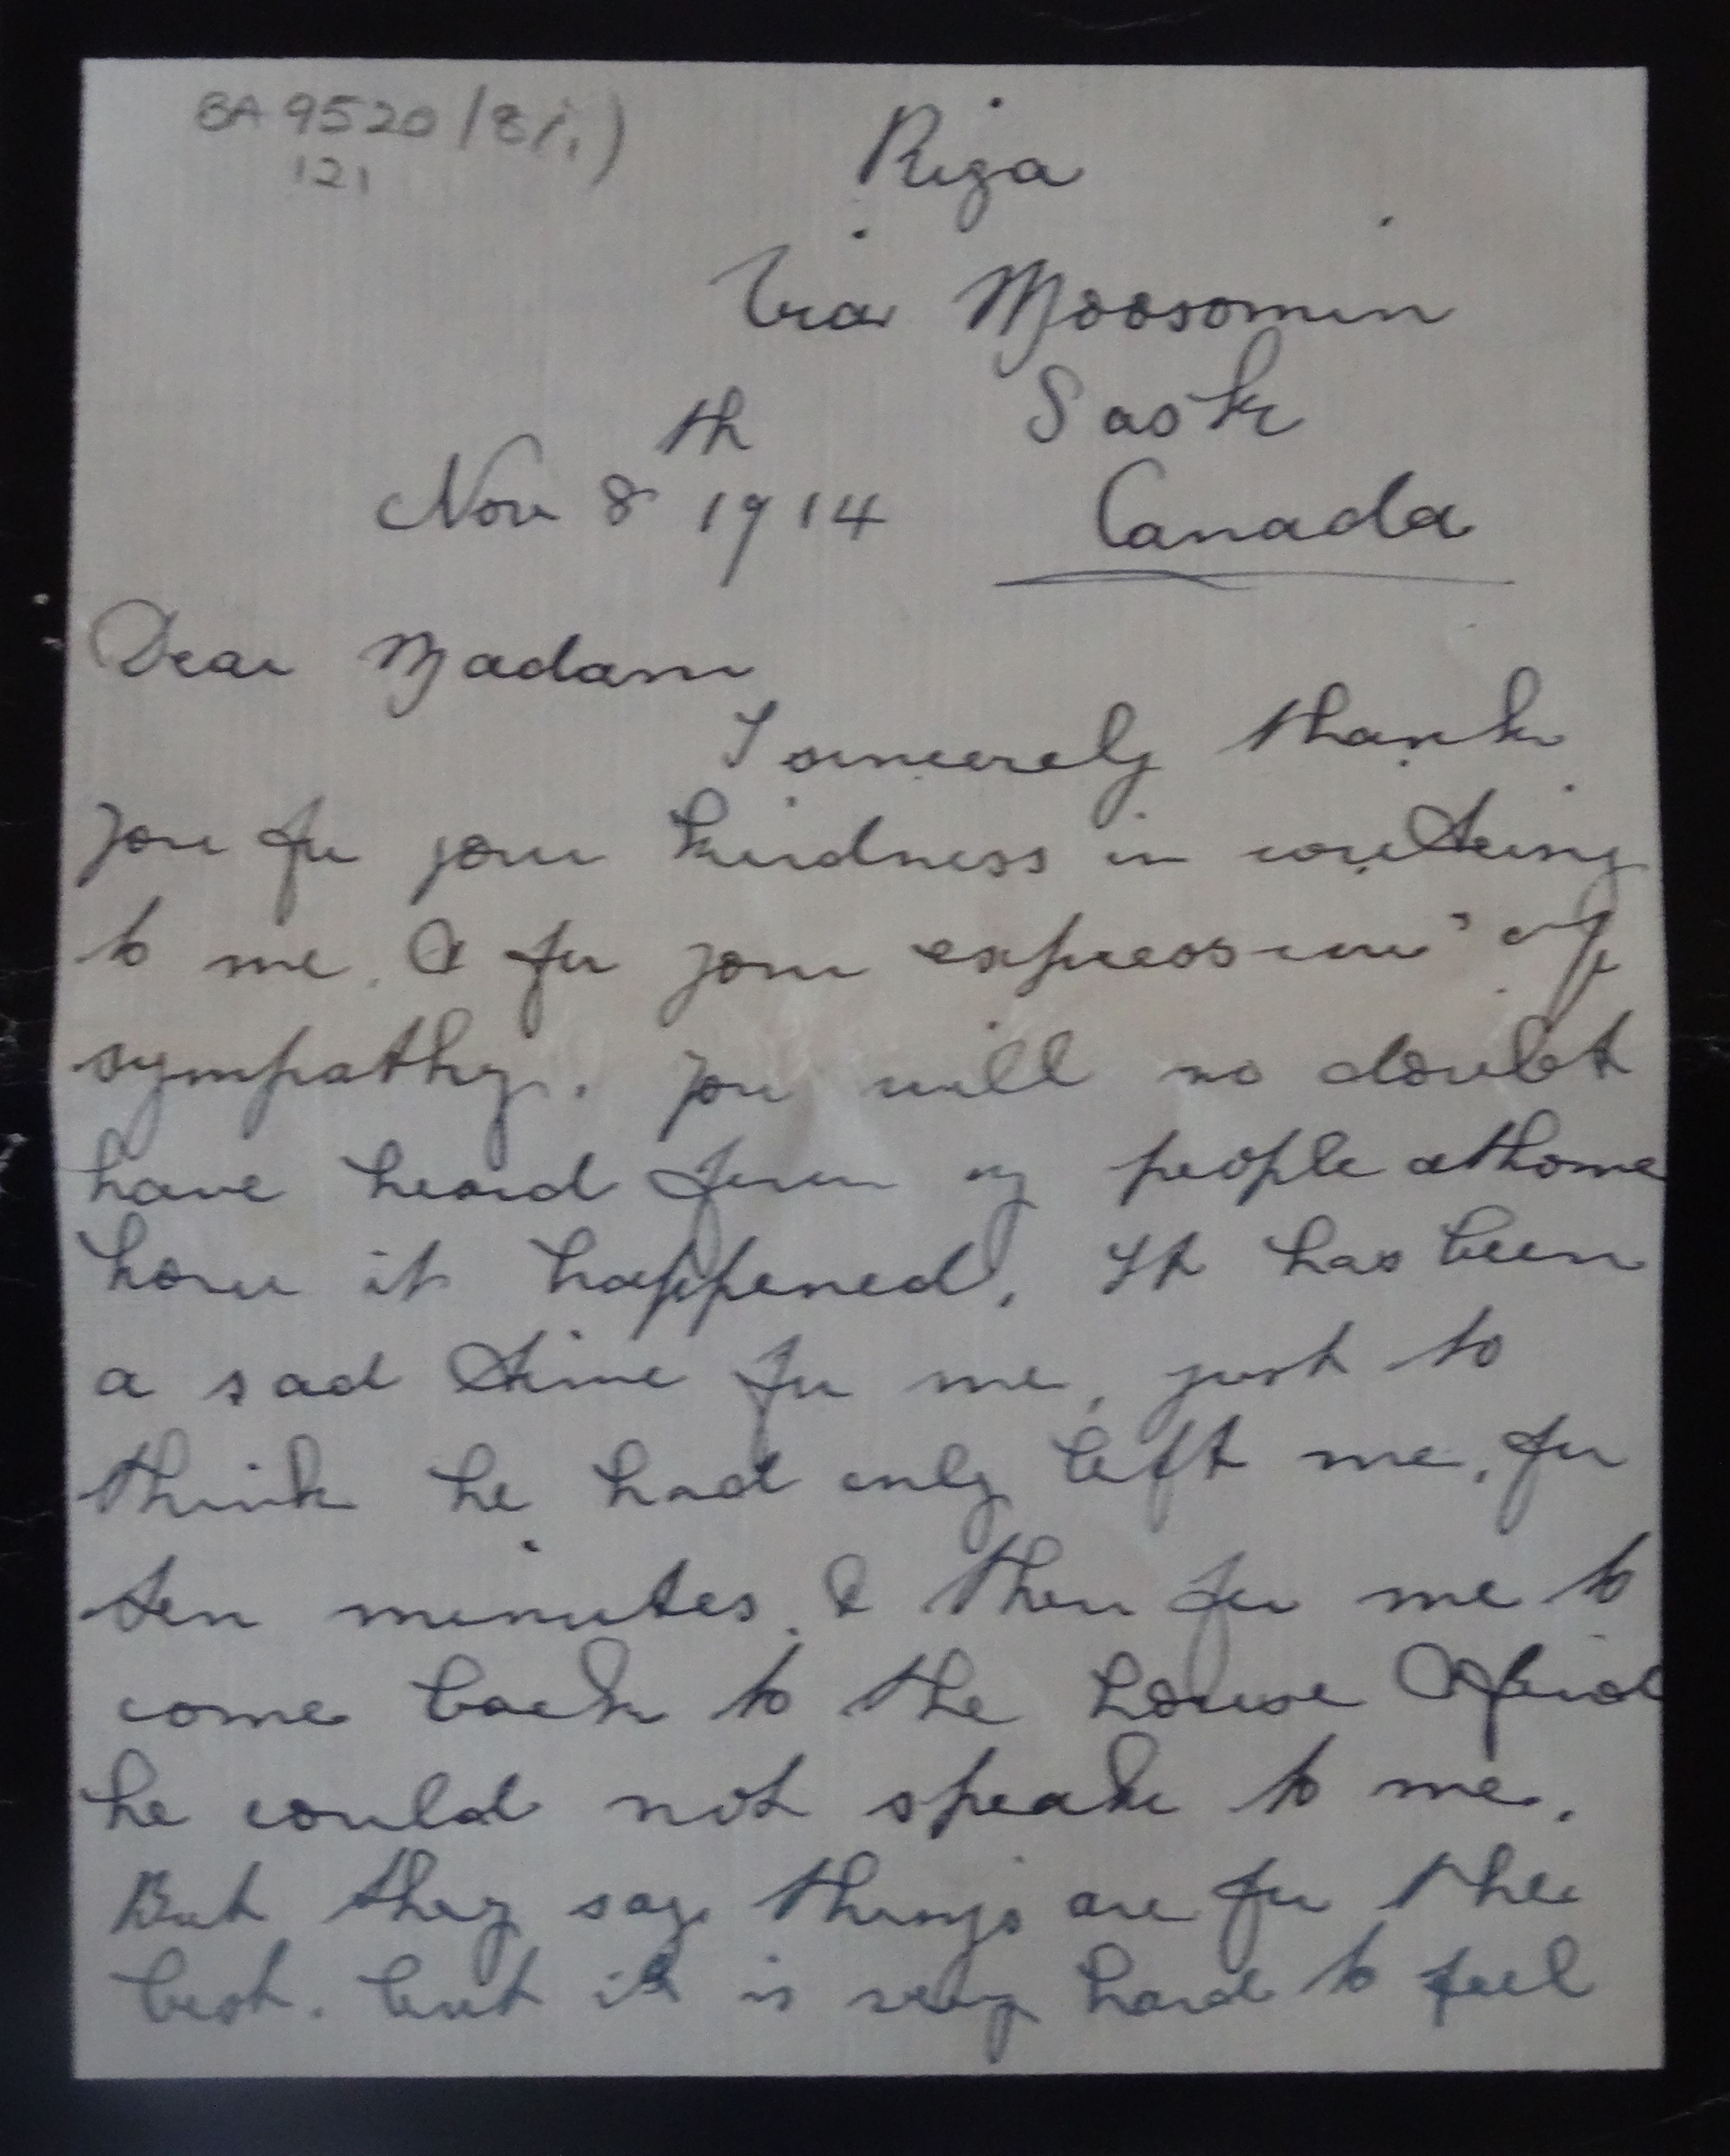 BA 9520/8(i)
121
Riga
Via Moosomin
Sask
Nov 8th 1914 Canada
Dear Madam
I sincerely thank
you for your kindness in writeing
to me, & for your expression of
sympathy. you will no doubt
have heard from my people athome
how it happened. It has been
a sad time for me, just to
think he had only left me, for
ten minutes, & then for me to
come back to the house &
he could not speak to me.
But they say things are for the
best. but it is very hard to feel